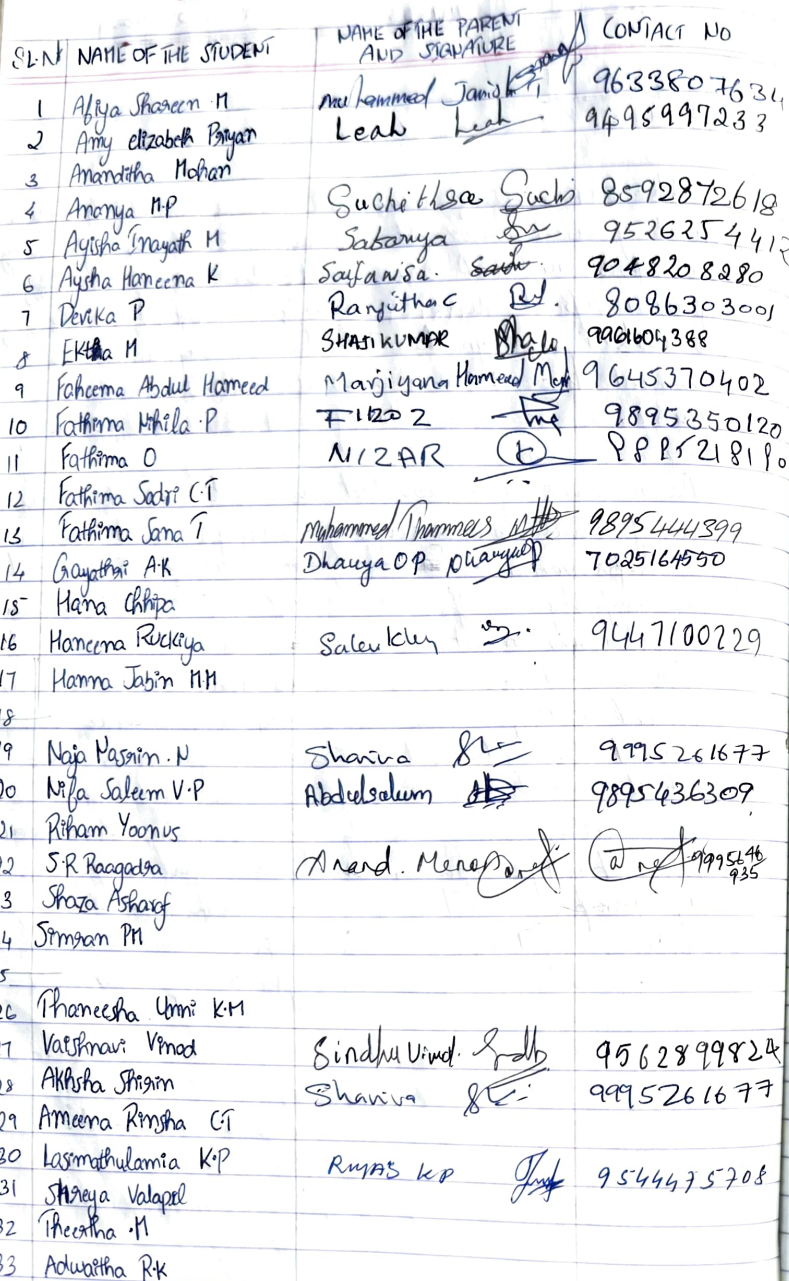 SL.No NAME OF THE STUDENT NAME OF THE PARENT AND SIGNATURE CONTACT NO
1 Afiya Shareen .M Muhammed 963380763
2 Amy elizabeth Priyan Leah Leah 9495997233
3 Ananditha Mohan
4 Ananya M.P Suchithra Suchi 8592872618
5 Ayisha Inayath M Sabanya 952625441
6 Aysha Haneena K Saufanisa. 9048208280
7 Devika P Ranjitha C 8086303001
8 Ektha M SHAJIKUMAR Shaji 9961604388
9 Faheema Abdul Hameed Marjiyana Hameed 9645370402
10 Fathima Nihila .P FIROZ 9895350120
11 Fathima O NIZAR 9895218190
12 Fathima Sadri C.T
13 Fathima Sana T Muhammed Thammees 9895444399
14 Gayathri A.K Dhanya O P Dhanya OP 7025164550
15 Hana Chhipa
16 Haneena Ruckiya 9447100229
17 Hanna Jabin M.M
8
9 Naja Nasrin .N Shaniva 9995261677
20 Nifa Saleem V.P Abdulsalum 9895436309
21 Riham Yoonus
2 S.R Raagadra Anand . Menon 9995646935
3 Shaza Asharaf
4 Simran PM
5
26 Thaneesha Unni K.M
7 Vaishnavi Vinod Sindhu Vinod. 9562899824
28 Akhsha Shirin Shaniva 9995261677
29 Ameena Rinsha C.T
30 Lasimathulamia K.P RIYAS KP 9544475708
31 Shreya Valapil
32 Theertha .M
33 Adwaitha R.K